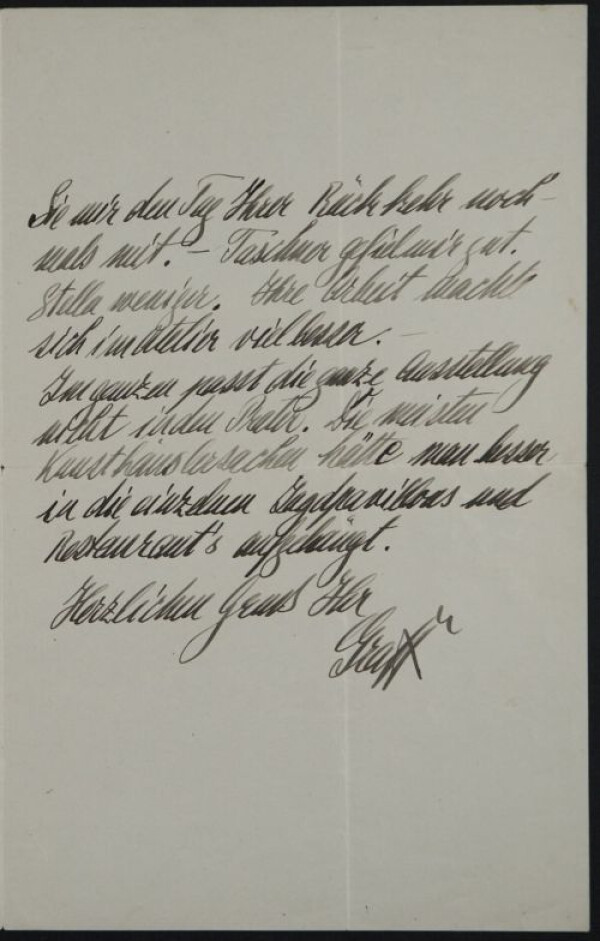 Sie mir den Tag Ihrer Rück kehr noch-
mals mit. – Taschner gefiel mir gut.
Stella weniger. Ihre Arbeit machte
sich im Atelier viel besser. –
Im ganzen passt die ganze Ausstellung
nicht in den Prater. Die meisten
Künsthäuslersachen hätte man besser
in die einzelnen Jagdpavillons und
Restaurant's aufgehängt.
Herzlichen Gruss Ihr